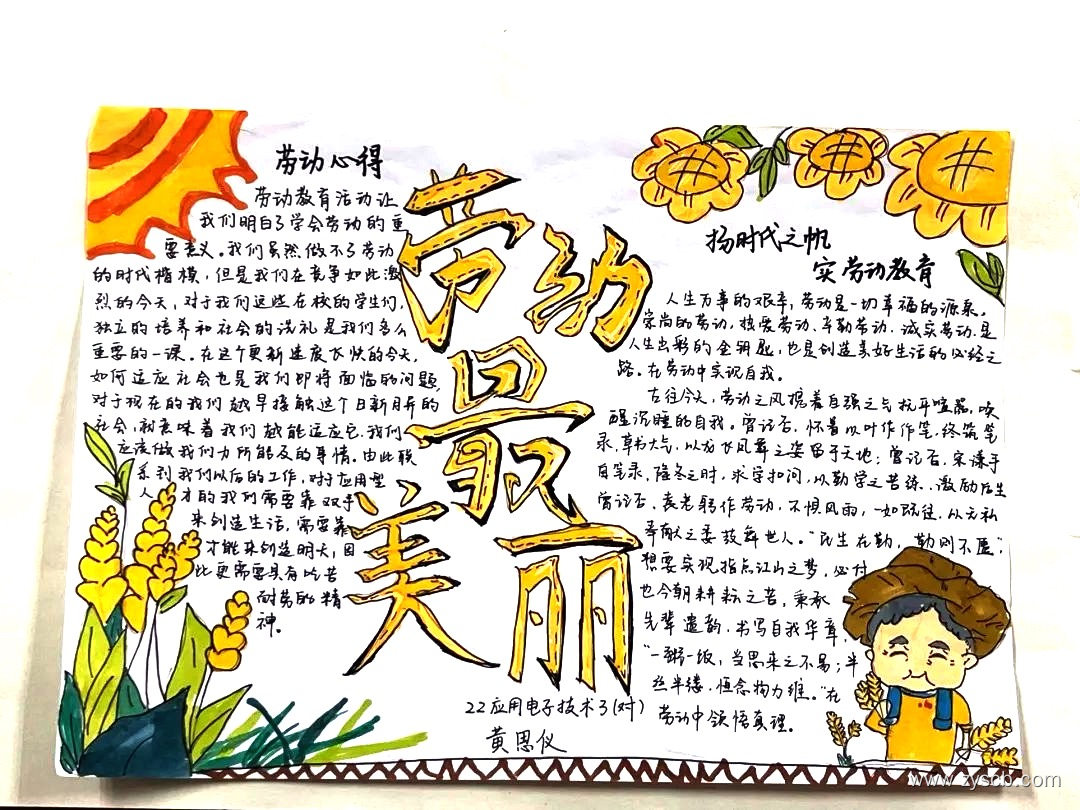 劳动心得
劳动教育活动让
我们明白了学会劳动的重
要意义。我们虽然做不了劳动
的时代楷模，但是我们在竞争如此激
烈的今天，对于我们这些在校的学生们，
独立的培养和社会的洗礼是我们多么
重要的一课。在这个更新速度飞快的今天，
如何适应社会也是我们即将面临的问题，
对于现在的我们越早接触这个日新月异的
社会，就意味着我们越能适应它。我们
应该做我们力所能及的事情。由此联
系到我们以后的工作，对于应用型
人才的我们需要靠双手
来创造生活，需要靠
才能来创造明天，因
此更需要具有吃苦
耐劳的精
神。
劳动
最
美丽
扬时代之帆
实劳动教育
人生万事的艰辛，劳动是一切幸福的源泉。
崇尚的劳动，热爱劳动、辛勤劳动、诚实劳动，是
人生出彩的金钥匙，也是创造美好生活的必经之
路。在劳动中实现自我。
古往今天，劳动之风携着自强之气抚平喧嚣，唤
醒沉睡的自我。曾记否，怀着以叶作笔，终筑笔
录，草书大气，以龙飞凤舞之姿留于天地；曾记否，宋濂手
自笔录，隆冬之时，求学扣问，以勤学之苦读，激励后生
曾记否，袁老躬作劳动，不惧风雨，一如既往，从无私
奉献之委鼓舞世人。"民生在勤，勤则不匮"，
想要实现指点江山之梦，必付
也今朝耕耘之苦，秉承
先辈遗韵，书写自我华章，
"一粥一饭，当思来之不易；半
丝半缕，恒念物力维。"在
劳动中领悟真理。
22应用电子技术3(对)
黄恩仪
www.zyscb.com